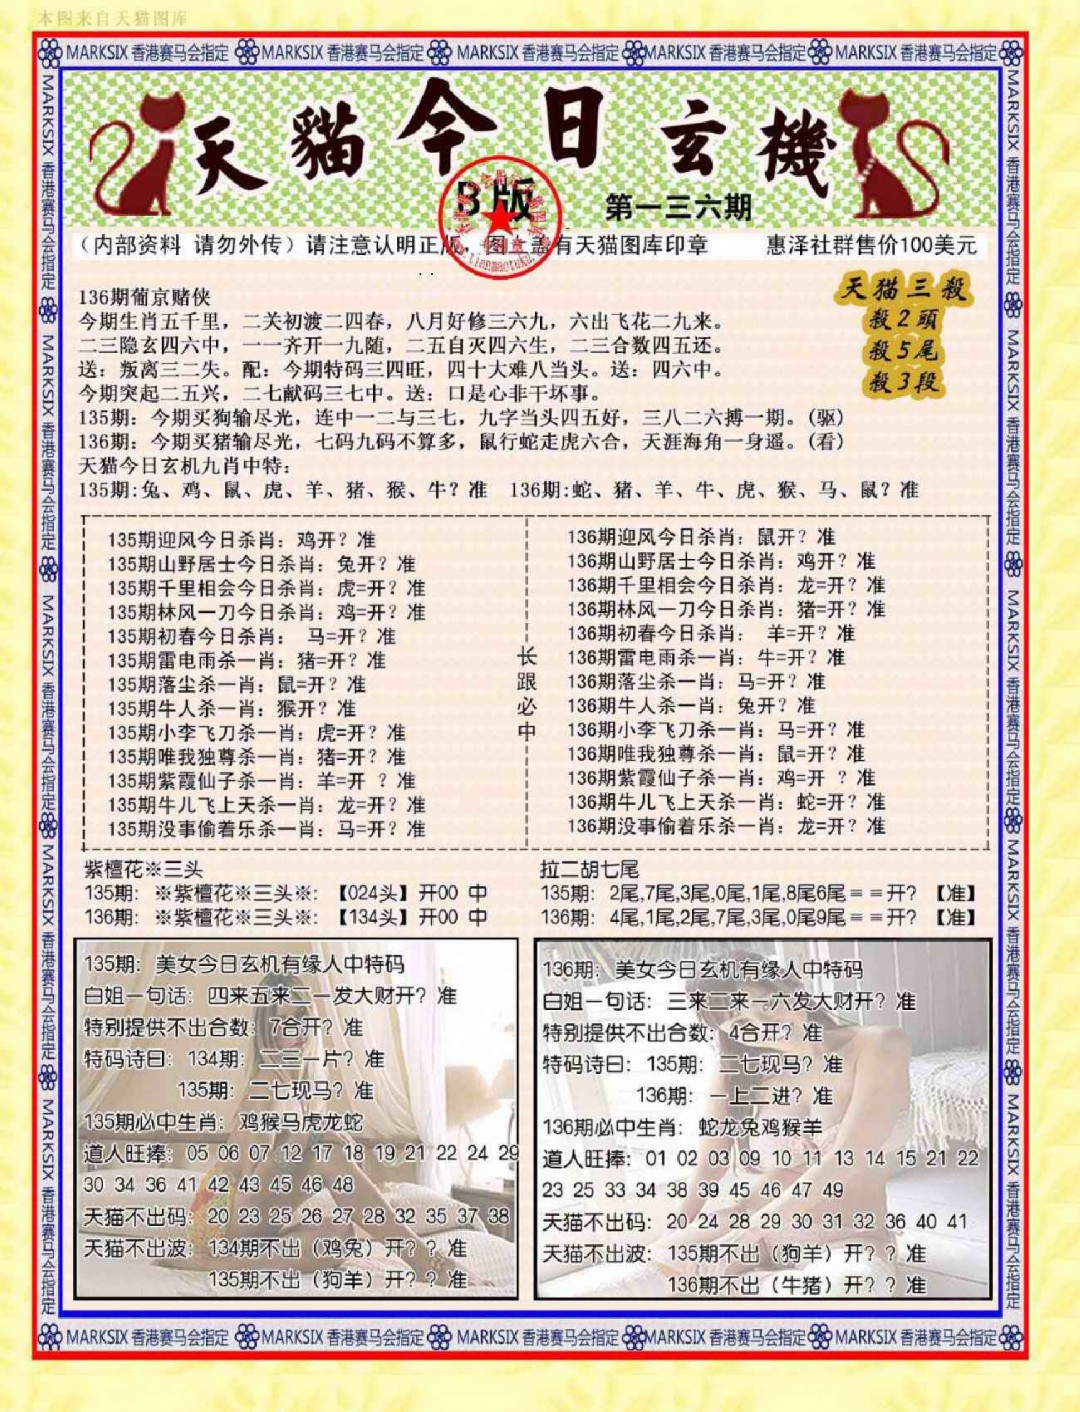 本图来自天猫图库
MARKSIX 香港赛马会指定 MARKSIX 香港赛马会指定 MARKSIX 香港赛马会指定 MARKSIX 香港赛马会指定 MARKSIX 香港赛马会指定
天貓今日玄機
B版
第一三六期
（内部资料 请勿外传）请注意认明正版，图上盖有天猫图库印章 惠泽社群售价100美元
天猫三殺
殺2頭
殺5尾
殺3段
136期葡京赌侠
今期生肖五千里，二关初渡二四春，八月好修三六九，六出飞花二九来。
二三隐玄四六中，一一齐开一九随，二五自灭四六生，二三合数四五还。
送：叛离三二失。配：今期特码三四旺，四十大难八当头。送：四六中。
今期突起二五兴，二七献码三七中。送：口是心非干坏事。
135期：今期买狗输尽光，连中一二与三七，九字当头四五好，三八二六搏一期。(驱)
136期：今期买猪输尽光，七码九码不算多，鼠行蛇走虎六合，天涯海角一身遥。(看)
天猫今日玄机九肖中特：
135期:兔、鸡、鼠、虎、羊、猪、猴、牛？准 136期:蛇、猪、羊、牛、虎、猴、马、鼠？准
135期迎风今日杀肖：鸡开？准
135期山野居士今日杀肖：兔开？准
135期千里相会今日杀肖：虎=开？准
135期林风一刀今日杀肖：鸡=开？准
135期初春今日杀肖： 马=开？准
135期雷电雨杀一肖：猪=开？准
135期落尘杀一肖：鼠=开？准
135期牛人杀一肖：猴开？准
135期小李飞刀杀一肖：虎=开？准
135期唯我独尊杀一肖：猪=开？准
135期紫霞仙子杀一肖：羊=开 ？准
135期牛儿飞上天杀一肖：龙=开？准
135期没事偷着乐杀一肖：马=开？准
长跟必中
136期迎风今日杀肖：鼠开？准
136期山野居士今日杀肖：鸡开？准
136期千里相会今日杀肖：龙=开？准
136期林风一刀今日杀肖：猪=开？准
136期初春今日杀肖： 羊=开？准
136期雷电雨杀一肖：牛=开？准
136期落尘杀一肖：马=开？准
136期牛人杀一肖：兔开？准
136期小李飞刀杀一肖：马=开？准
136期唯我独尊杀一肖：鼠=开？准
136期紫霞仙子杀一肖：鸡=开 ？准
136期牛儿飞上天杀一肖：蛇=开？准
136期没事偷着乐杀一肖：龙=开？准
紫檀花※三头
135期：※紫檀花※三头※：【024头】开00 中
136期：※紫檀花※三头※：【134头】开00 中
拉二胡七尾
135期：2尾,7尾,3尾,0尾,1尾,8尾6尾＝＝开？【准】
136期：4尾,1尾,2尾,7尾,3尾,0尾9尾＝＝开？【准】
135期：美女今日玄机有缘人中特码
白姐一句话：四来五来二一发大财开？准
特别提供不出合数：7合开？准
特码诗曰：134期：二三一片？准
135期：二七现马？准
135期必中生肖：鸡猴马虎龙蛇
道人旺捧：05 06 07 12 17 18 19 21 22 24 29
30 34 36 41 42 43 45 46 48
天猫不出码：20 23 25 26 27 28 32 35 37 38
天猫不出波：134期不出（鸡兔）开？？准
135期不出（狗羊）开？？准
136期：美女今日玄机有缘人中特码
白姐一句话：三来二来一六发大财开？准
特别提供不出合数：4合开？准
特码诗曰：135期：二七现马？准
136期：一上二进？准
136期必中生肖：蛇龙兔鸡猴羊
道人旺捧：01 02 03 09 10 11 13 14 15 21 22
23 25 33 34 38 39 45 46 47 49
天猫不出码：20 24 28 29 30 31 32 36 40 41
天猫不出波：135期不出（狗羊）开？？准
136期不出（牛猪）开？？准
MARKSIX 香港赛马会指定 MARKSIX 香港赛马会指定 MARKSIX 香港赛马会指定 MARKSIX 香港赛马会指定 MARKSIX 香港赛马会指定
MARKSIX 香港赛马会指定 MARKSIX 香港赛马会指定 MARKSIX 香港赛马会指定 MARKSIX 香港赛马会指定 MARKSIX 香港赛马会指定
MARKSIX 香港赛马会指定 MARKSIX 香港赛马会指定 MARKSIX 香港赛马会指定 MARKSIX 香港赛马会指定 MARKSIX 香港赛马会指定